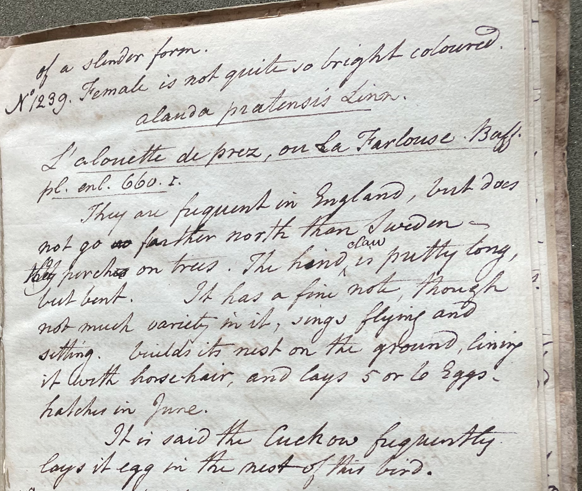 of a slender form.
No 1239. Female is not quite so bright coloured.
alauda pratensis Linn.
L'alouette de prez, ou La Farlouse. Buff.
pl. enl. 660. 1.
They are frequent in England, but does
not go farther north than Sweden -
they perch on trees. The hind claw is pretty long,
but bent. It has a fine note, though
not much variety in it, sings flying and
sitting. builds its nest on the ground, lining
it with horse-hair, and lays 5 or 6 Eggs -
hatches in June.
It is said the Cuckow frequently
lays it egg in the nest of this bird.